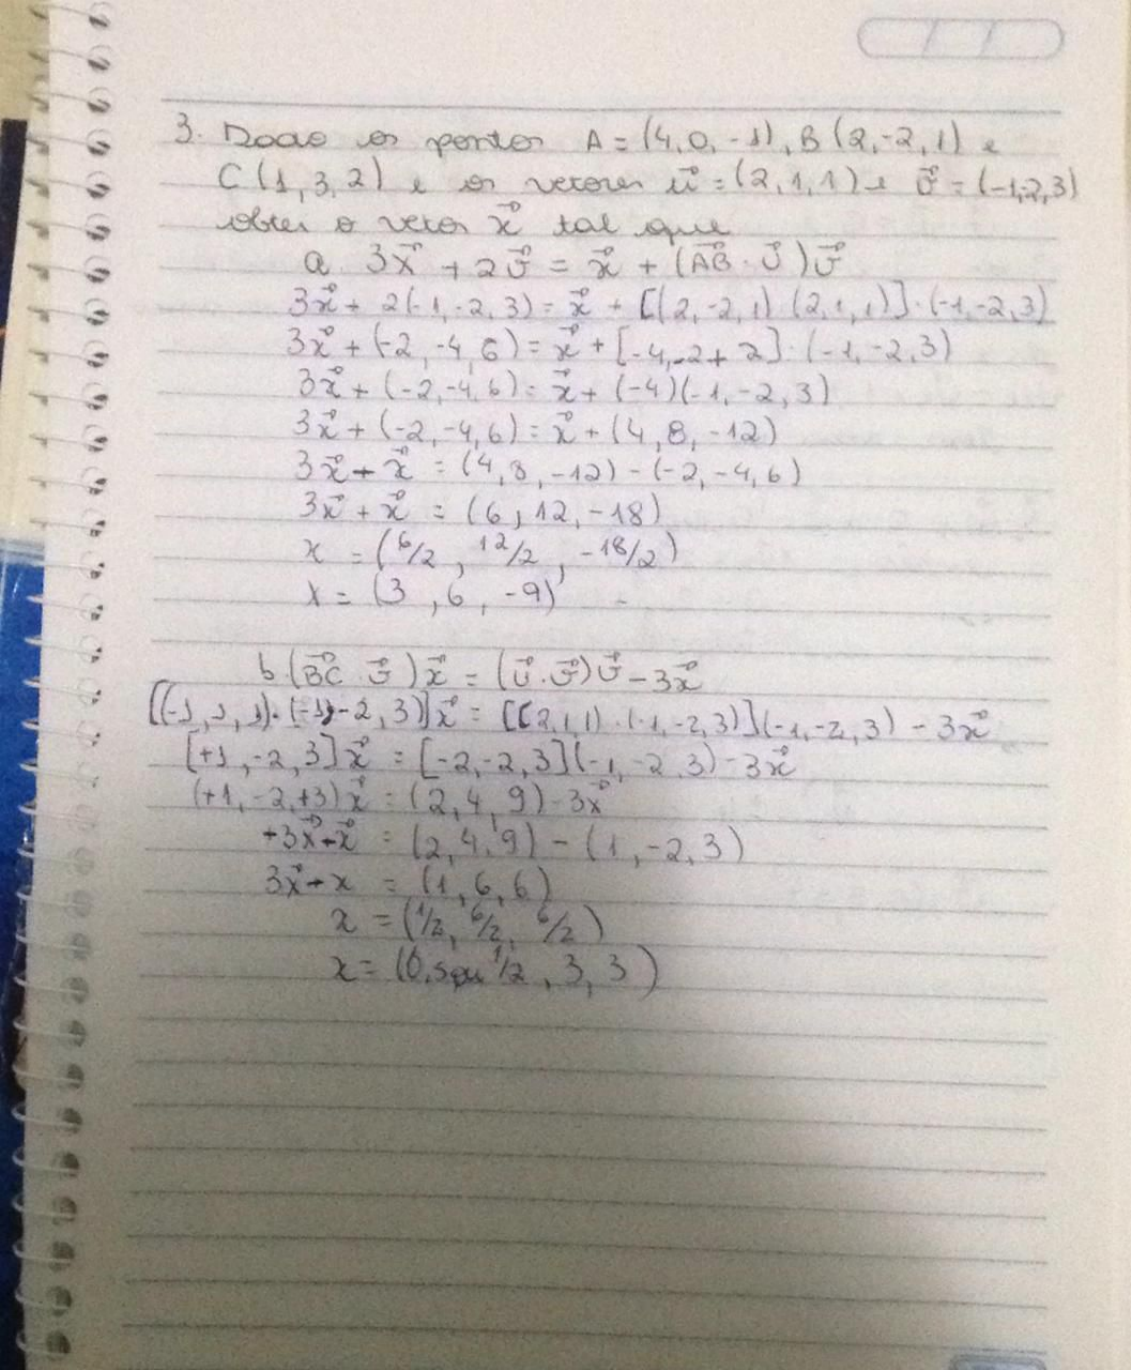 3. Dado os pontos A = (4, 0, -1), B (2, -2, 1) e
C (1, 3, 2) e os vetores u⃗ = (2, 1, 1) e v⃗ = (-1, -2, 3)
obter o vetor x⃗ tal que
a. 3x⃗ + 2v⃗ = x⃗ + (AB⃗ · u⃗) v⃗
3x⃗ + 2(-1, -2, 3) = x⃗ + [(2, -2, 1) · (2, 1, 1)] · (-1, -2, 3)
3x⃗ + (-2, -4, 6) = x⃗ + [-4, -2 + 2] · (-1, -2, 3)
3x⃗ + (-2, -4, 6) = x⃗ + (-4)(-1, -2, 3)
3x⃗ + (-2, -4, 6) = x⃗ + (4, 8, -12)
3x⃗ - x⃗ = (4, 8, -12) - (-2, -4, 6)
3x⃗ + x⃗ = (6, 12, -18)
x = (6/2, 12/2, -18/2)
x = (3, 6, -9)
b. (BC⃗ · v⃗) x⃗ = (u⃗ · v⃗) v⃗ - 3x⃗
[(-1, 1, 1) · (-1, -2, 3)] x⃗ = [(2, 1, 1) · (-1, -2, 3)] (-1, -2, 3) - 3x⃗
[+1, -2, 3] x⃗ = [-2, -2, 3] (-1, -2, 3) - 3x⃗
(+1, -2, +3) x⃗ = (2, 4, 9) - 3x⃗
+3x⃗ - x⃗ = (2, 4, 9) - (1, -2, 3)
3x⃗ - x = (1, 6, 6)
x = (1/2, 6/2, 6/2)
x = (0,5 ou 1/2, 3, 3)